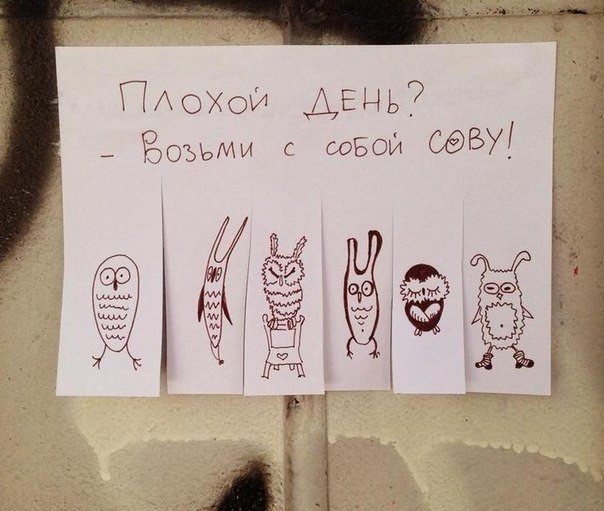 Плохой день?
- Возьми с собой сову!